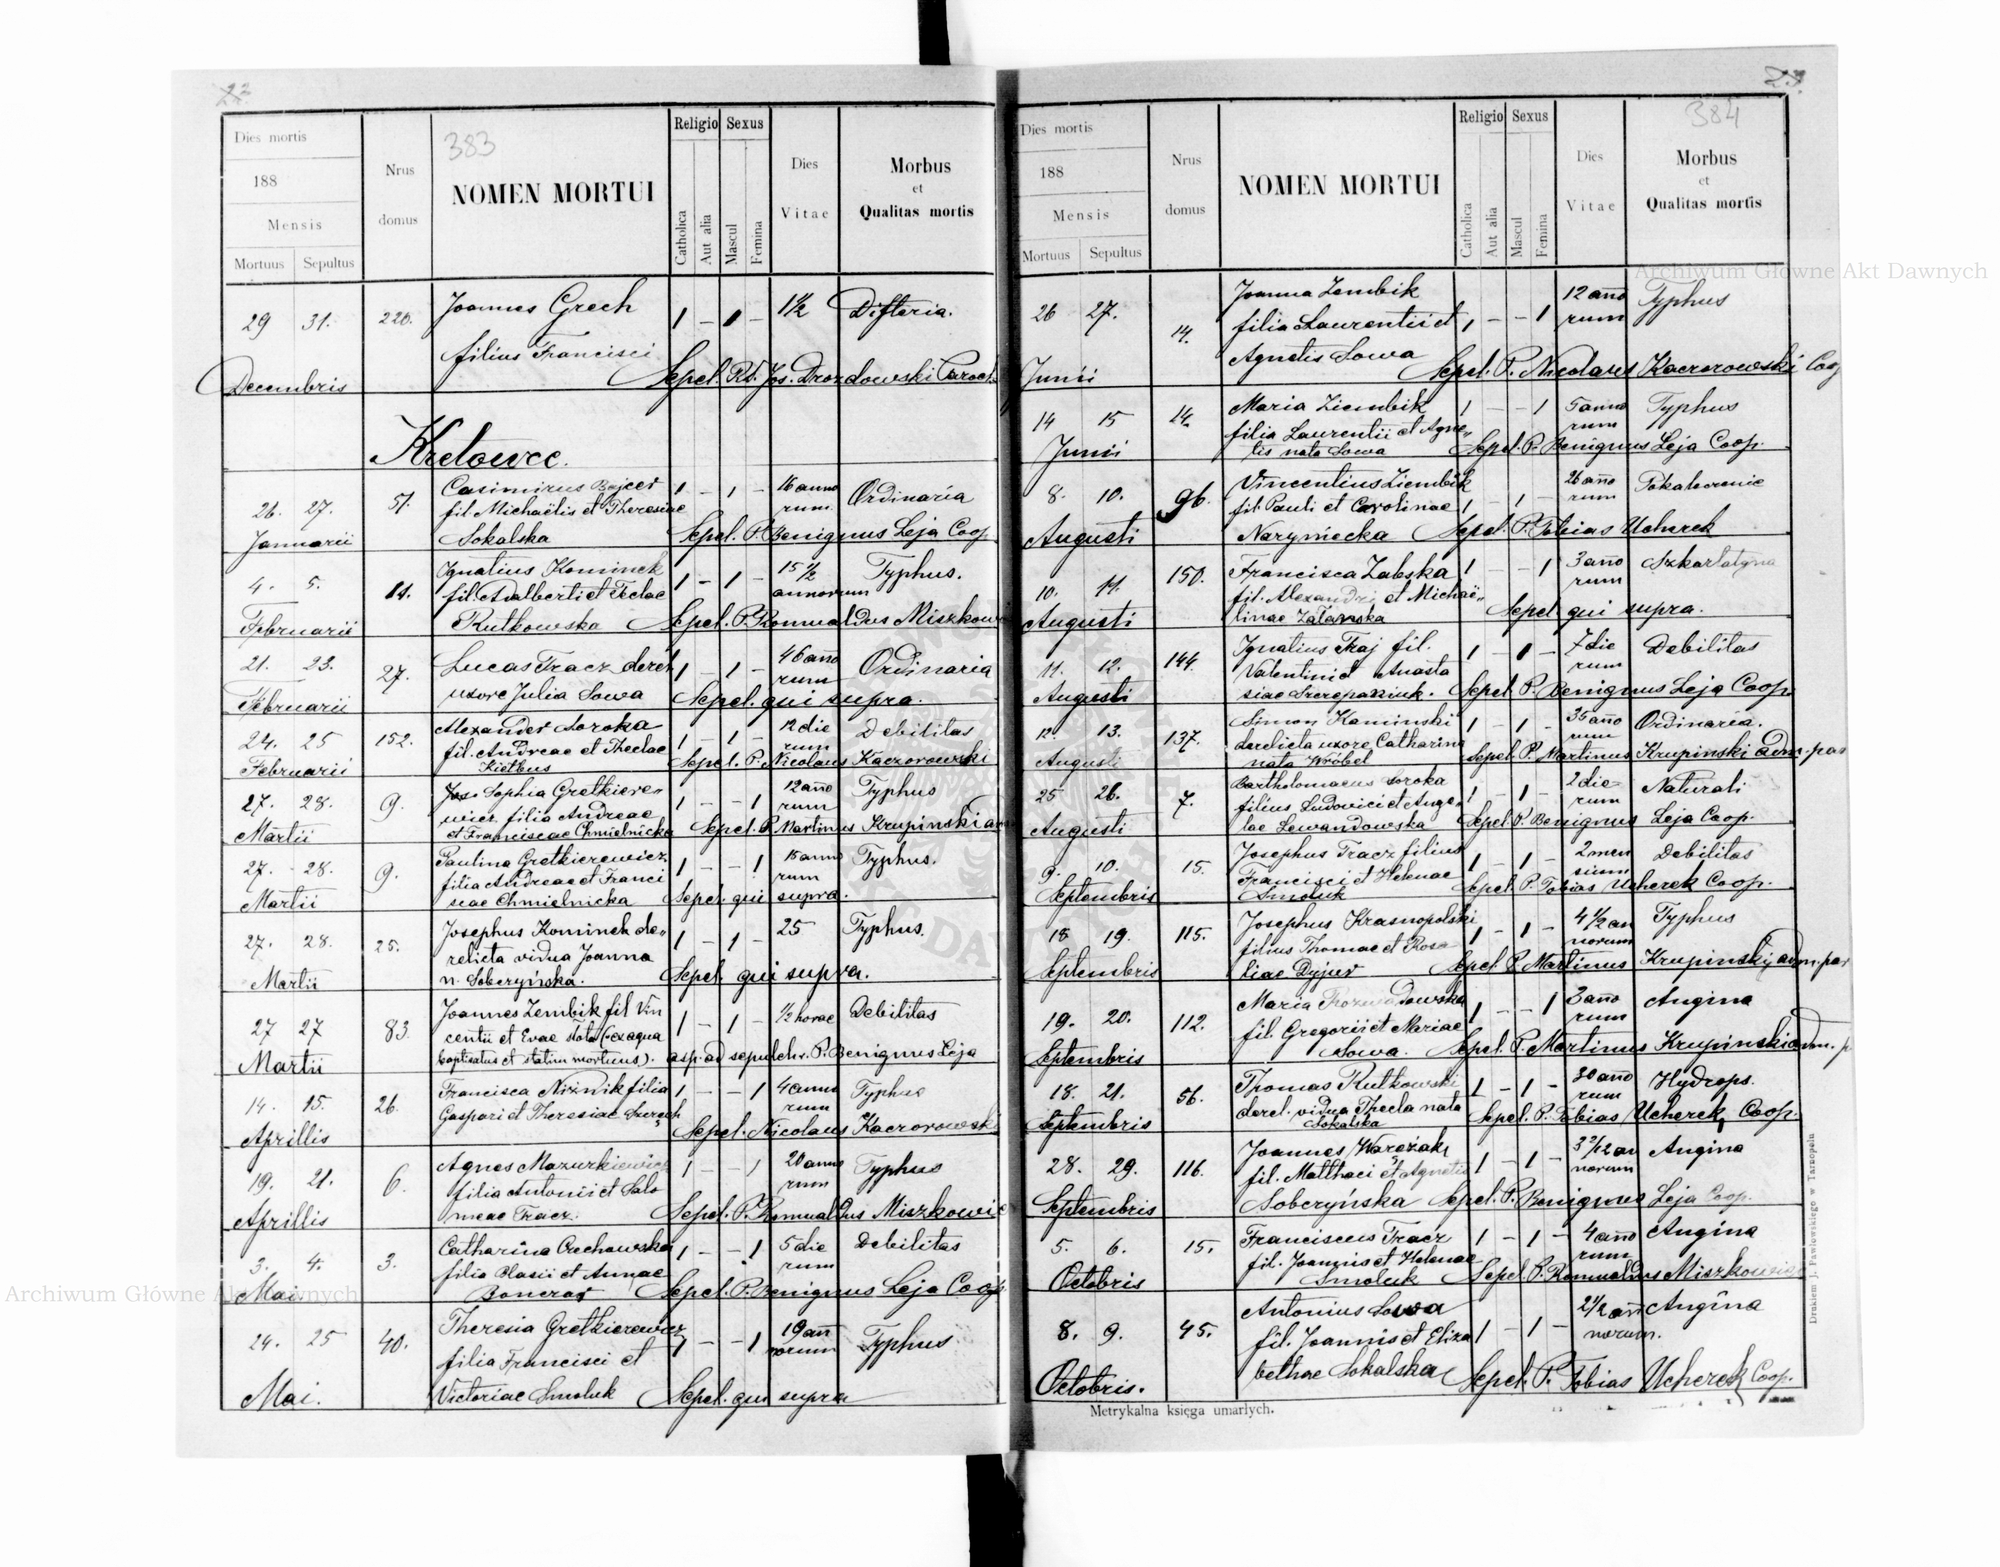 23
383
Dies mortis
188
Mensis
Mortuus Sepultus
Nrus domus
NOMEN MORTUI
Religio
Catholica
Aut alia
Sexus
Mascul
Femina
Dies Vitae
Morbus
et
Qualitas mortis
29 31. 220. Joannes Grech 1 – 1 – 1½ Difteria.
filius Francisci
Decembris Sepel. Rd. Jos. Drozdowski Paroch.
Kretowce.
26. 27. 51. Casimirus Bajcer 1 – 1 – 16 anno
fil. Michaëlis et Theresiae rum. Ordinaria
Januarii Sokalska Sepel. P. Benignus Leja Coop
4. 5. 11. Ignatius Kominek 1 – 1 – 15½ Typhus.
fil. Adalberti et Teclae annorum
Februarii Rutkowska Sepel. P. Romualdus Miszkow
21. 23. 27. Lucas Tracz derel 1 – 1 – 46 ano Ordinaria
uxore Julia Sowa rum
Februarii Sepel. qui supra.
24. 25 152. Alexander Soroka 1 – 1 – 12 die Debilitas
fil. Andreae et Theclae rum
Februarii Kiełbus Sepel. P. Nicolaus Kaczorowski
27. 28. 9. Sophia Gretkiere„ 1 – – 1 12 ano Typhus
wicz filia Andreae rum
Martii et Franciscae Chmielnicka Sepel. P. Martinus Krupinski a
27. 28. 9. Paulina Gretkierewicz 1 – – 1 15 anno Typhus.
filia Andreae et Franci rum
Martii scae Chmielnicka Sepel. qui supra.
27. 28. 25. Josephus Kominek de„ 1 – 1 – 25 Typhus.
relicta vidua Joanna
Martii n. Soberyńska. Sepel. qui supra.
27 27 83. Joannes Zembik fil Vin 1 – 1 – ½ horae Debilitas
centii et Evae (ex aqua
Martii baptisatus et statim mortuus). asp. ad sepulchr. P. Benignus Leja
14. 15. 26. Francisca Niżnik filia 1 – – 1 4 anno Typhus
Gaspari et Theresiae rum
Aprillis Sepel. Nicolaus Kaczorowski
19. 21. 6. Agnes Mazurkiewicz 1 – – 1 20 anno Typhus
filia Antonii et Salo rum
Aprillis meae Tracz. Sepel. P. Romualdus Miszkowic
3. 4. 3. Catharina Orchowska 1 – – 1 5 die Debilitas
filia Blasii et Annae rum
Mai Boncrar Sepel. P. Benignus Leja Coop
24. 25 40. Theresia Gretkierewicz 1 – – 1 19 an Typhus
filia Francisci et norum
Mai. Victoriae Smoluk Sepel. qui supra
23.
384
Dies mortis
188
Mensis
Mortuus Sepultus
Nrus domus
NOMEN MORTUI
Religio
Catholica
Aut alia
Sexus
Mascul
Femina
Dies Vitae
Morbus
et
Qualitas mortis
26 27. 14. Joanna Zembik 12 ano Typhus
filia Laurentii et 1 – – 1 rum
Agnetis Sowa
Junii Sepel. P. Nicolaus Kaczorowski Coop
14 15 14. Maria Ziembik 1 – – 1 5 anno Typhus
filia Laurentii et Agne„ rum
Junii tis nata Sowa Sepel. P. Benignus Leja Coop.
8. 10. 96. Vincentius Ziembik 26 ano Pokaleczenie
fil. Pauli et Carolinae 1 1 – rum
Augusti Naryniecka Sepel. P. Tobias Ucherek
10. 11. 150. Francisca Zabska 1 – – 1 3 ano Szkarlatyna
fil. Alexandri et Michaë„ rum
Augusti linae Sepel. qui supra.
11. 12. 144. Ignatius Traj fil. 1 – 1 – 7 die Debilitas
Valentini et Anasta rum
Augusti siae Szczepaniuk. Sepel. P. Benignus Leja Coop
12. 13. 137. Simon Kaminski 1 – 1 – 35 ano Ordinaria.
derelicta uxore Catharina rum
Augusti nata Wróbel Sepel. P. Martinus Krupinski adm. par
25 26. 7. Bartholomaeus Soroka 2 die Naturali
filius Ludovici et Ange„ 1 – 1 – rum
Augusti lae Lewandowska Sepel. P. Benignus Leja Coop.
9. 10. 15. Josephus Tracz filius 1 – 1 – 2 men Debilitas
Francisci et Helenae sium
Septembris Smoluk Sepel. P. Tobias Ucherek Coop.
18 19. 115. Josephus Krasnopolski 4½ an Typhus
filius Thomae et Rosa 1 – 1 – norum
Septembris liae Sepel. P. Martinus Krupinski adm. par
19. 20. 112. Maria Rozwadowska 1 – – 1 3 ano Angina
fil. Gregorii et Mariae rum
Septembris Sowa. Sepel. P. Martinus Krupinski adm. p
18. 21. 56. Thomas Rutkowski 1 – 1 – 30 ano Hydrops.
derel. vidua Thecla nata rum
Septembris Sokalska Sepel. P. Tobias Ucherek Coop.
28. 29. 116. Joannes Wareżak 3 2/12 an Angina
fil. Matthaei et Agnetis 1 – 1 – norum
Septembris Soberyńska Sepel. P. Benignus Leja Coop.
5. 6. 15. Franciscus Tracz 1 – 1 – 4 ano Angina
fil. Joannis et Helenae rum
Octobris Smoluk Sepel. P. Romualdus Miszkowic
8. 9. 45. Antonius Sowa 2½ an Angina
fil. Joannis et Eliza 1 – 1 – norum.
Octobris. bethae Sokalska Sepel. P. Tobias Ucherek Coop.
Metrykalna księga umarłych.
Drukiem J. Pawłowskiego w Tarnopolu
Archiwum Główne Akt Dawnych
Archiwum Główne Akt Dawnych